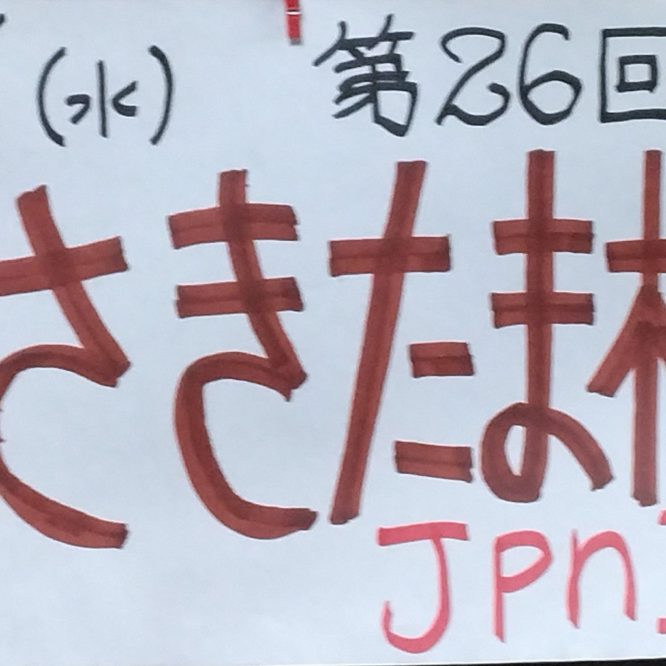 (水) 第26回
さきたま
Jpn